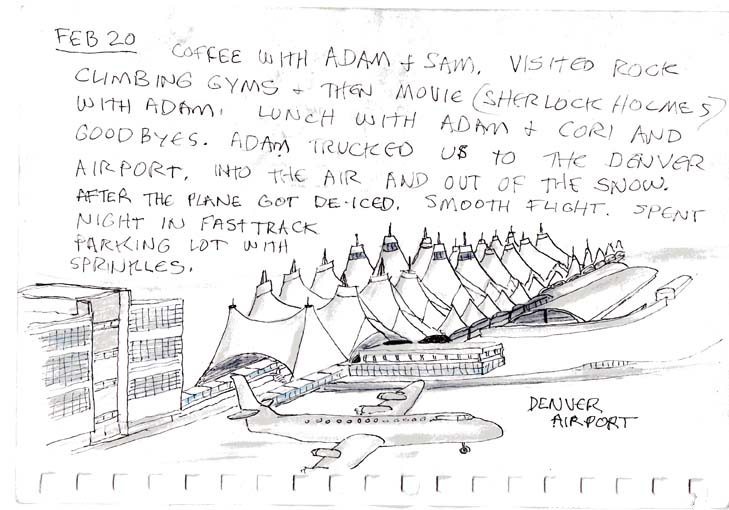 FEB 20 COFFEE WITH ADAM + SAM. VISITED ROCK
CLIMBING GYMS + THEN MOVIE (SHERLOCK HOLMES)
WITH ADAM. LUNCH WITH ADAM + CORI AND
GOODBYES. ADAM TRUCKED US TO THE DENVER
AIRPORT, INTO THE AIR AND OUT OF THE SNOW.
AFTER THE PLANE GOT DE-ICED. SMOOTH FLIGHT. SPENT
NIGHT IN FASTTRACK
PARKING LOT WITH
SPRINKLES.
DENVER
AIRPORT